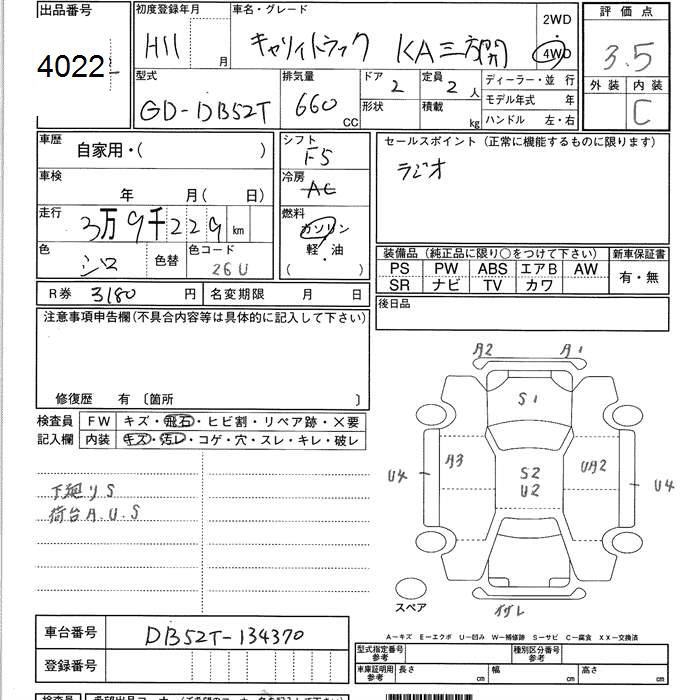 出品番号 4022
初度登録年月 H11 月
車名・グレード キャリィトラック KA三方開
2WD・4WD
評価点 3.5
外装 内装 C
型式 GD-DB52T
排気量 660 CC
ドア 2
定員 2人
形状 積載 kg
ディーラー・並行
モデル年式 年
ハンドル 左・右
車歴 自家用・( )
シフト F5
セールスポイント（正常に機能するものに限ります）
ラジオ
車検 年 月( 日)
冷房 AC
走行 3万9千229km
燃料 ガソリン・軽油 ( )
色 シロ 色替 色コード 26U
装備品（純正品に限り○をつけて下さい） 新車保証書
PS PW ABS エアB AW 有・無
SR ナビ TV カワ
R券 3180円 名変期限 月 日
後日品
注意事項申告欄(不具合内容等は具体的に記入して下さい)
修復歴 有 〔箇所 〕
検査員記入欄
FW キズ・飛石・ヒビ割・リペア跡・×要
内装 キズ・汚レ・コゲ・穴・スレ・キレ・破レ
下廻りS
荷台A.U.S
A2 A1
S1
U4 A3 S2 U2 UA2 U4
スペア
A－キズ E－エクボ U－凹み W－補修跡 S－サビ C－腐食 XX－交換済
車台番号 DB52T-134370
登録番号
型式指定番号 参考 種別区分番号 参考
車庫証明用 参考 長さ cm 幅 cm 高さ cm